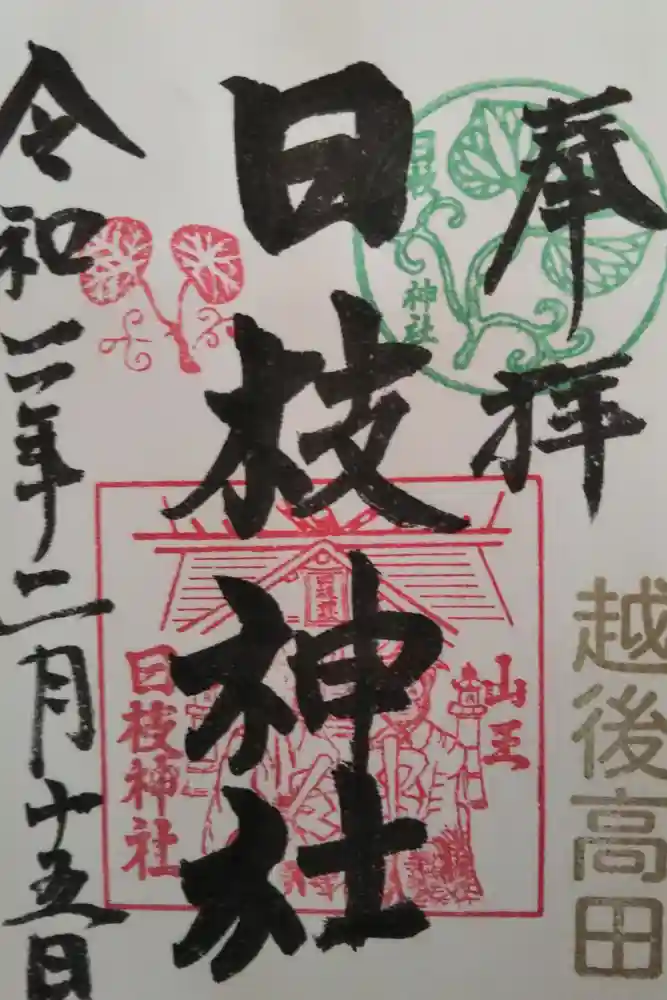 奉拝
越後高田
日枝神社
令和三年二月十五日
日枝
神社
山王
日枝神社